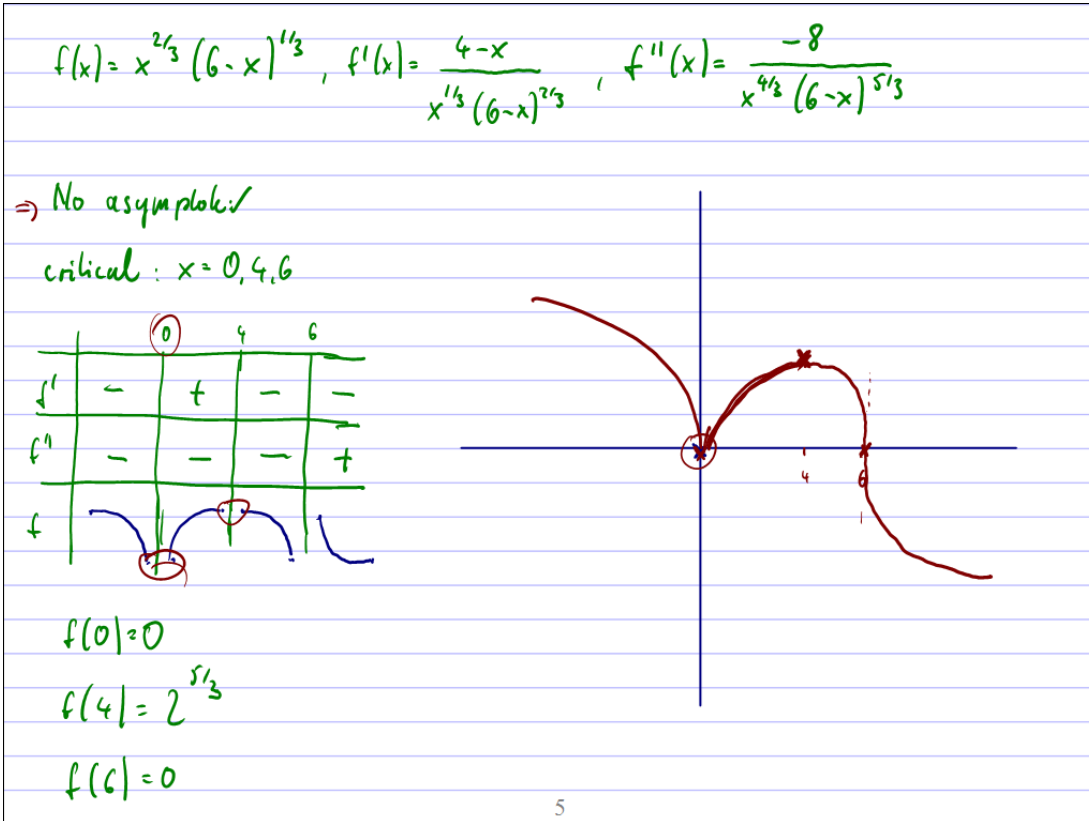 f(x) = x^{2/3} (6-x)^{1/3}, f'(x) = \frac{4-x}{x^{1/3} (6-x)^{2/3}}, f''(x) = \frac{-8}{x^{4/3} (6-x)^{5/3}}
⇒ No
critical : x = 0, 4, 6
0 4 6
f' - + - -
f'' - - - +
f
4 6
f(0) = 0
f(4) = 2^{5/3}
f(6) = 0
5